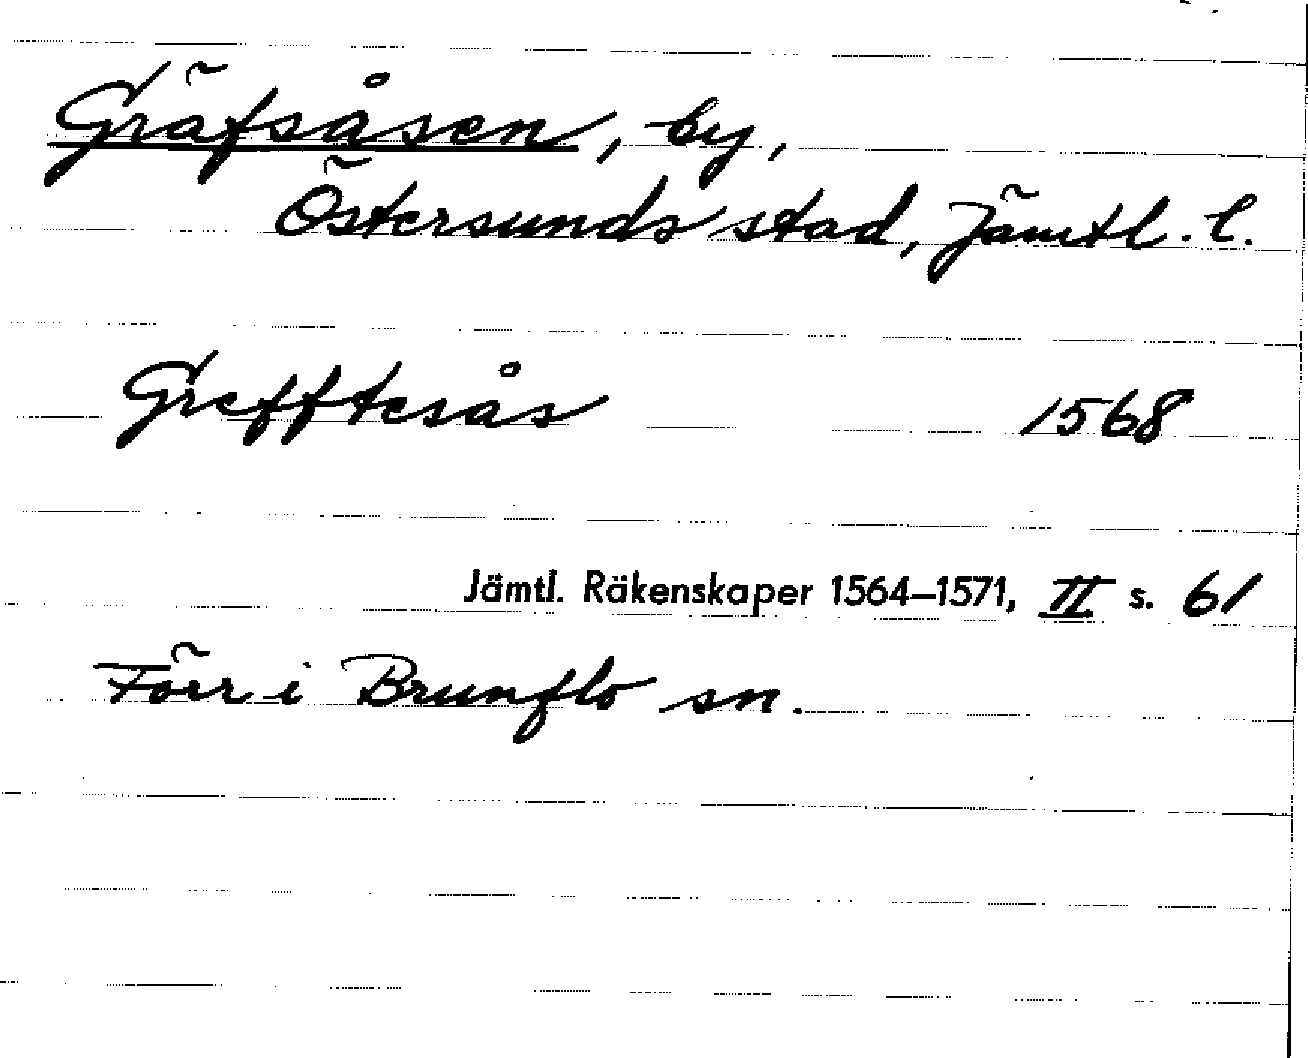 Gräfsåsen, by,
Östersunds stad, Jämtl. l.
Grefftesås 1568
Jämtl. Räkenskaper 1564–1571, II s. 61
Förr i Brunflo sn.